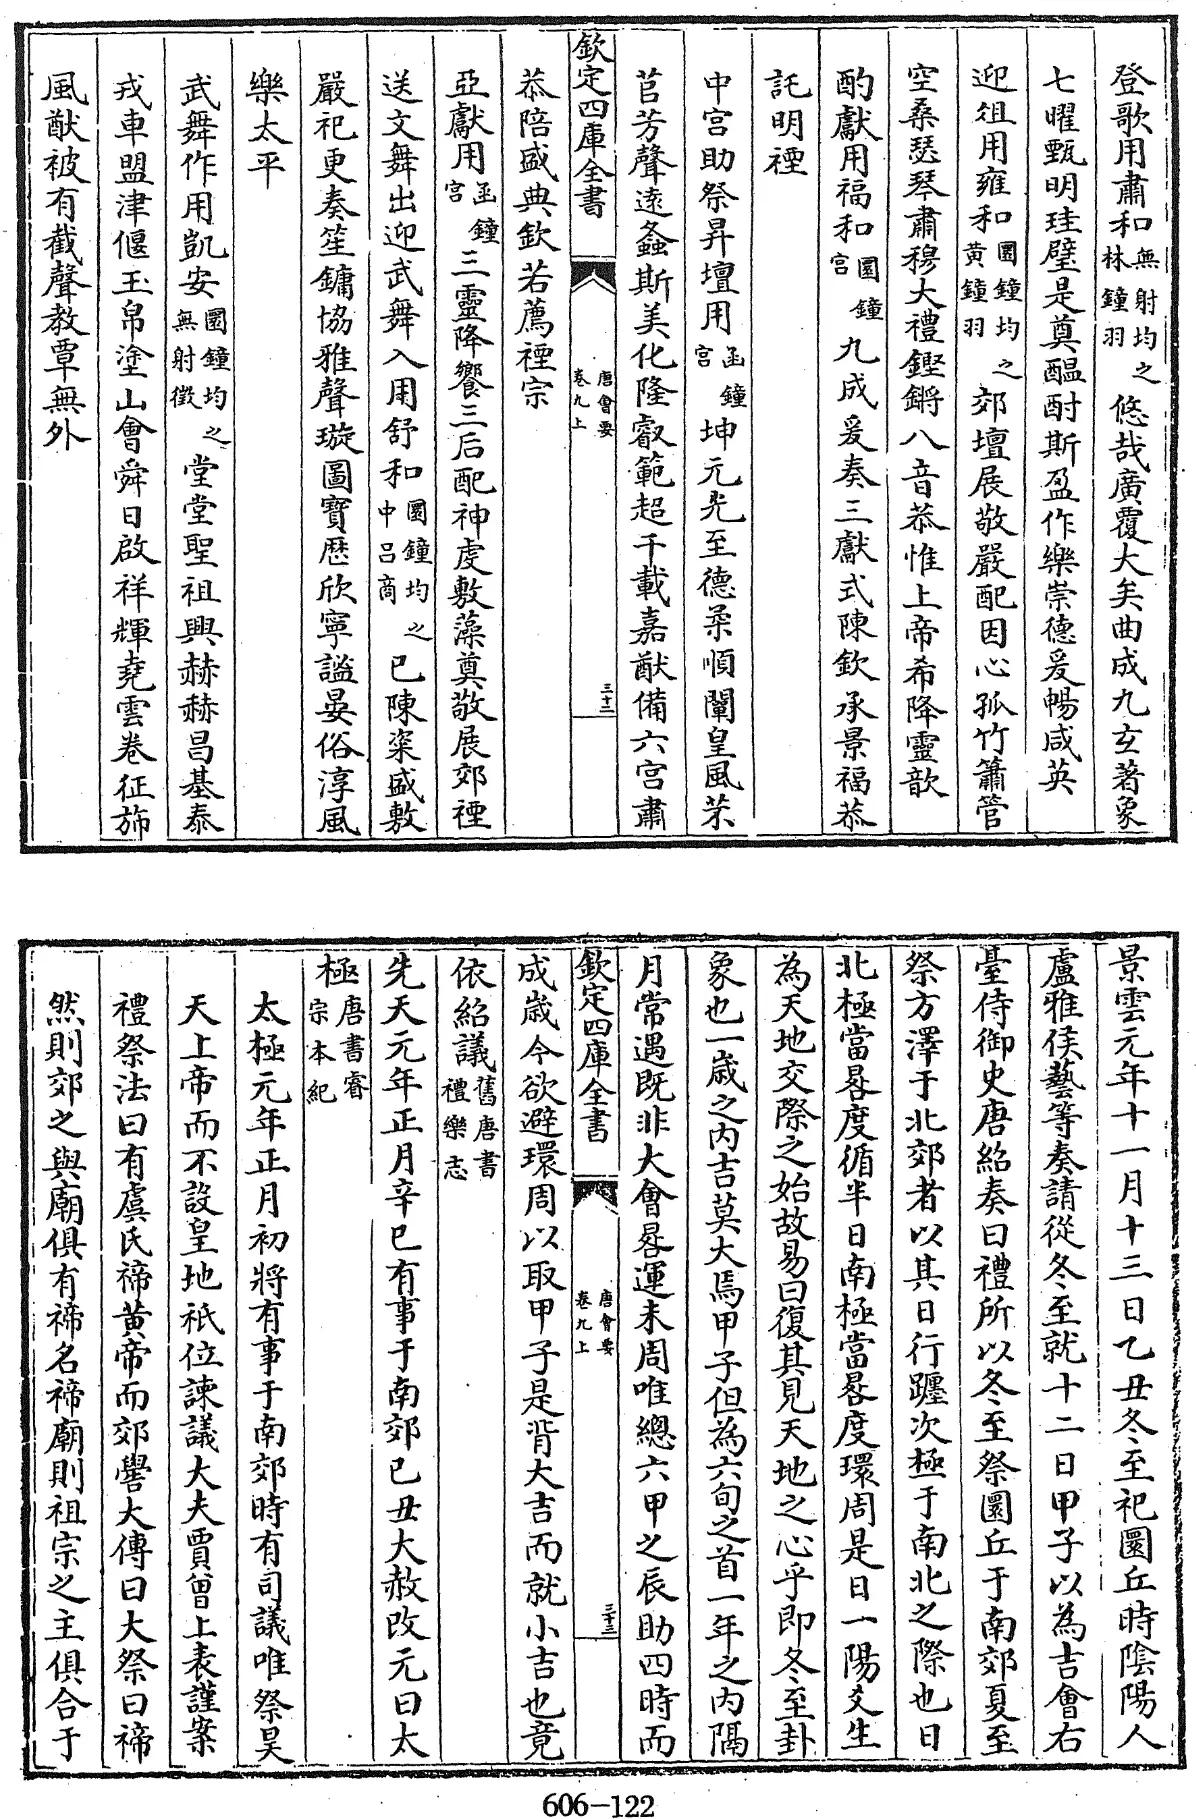 登歌用肅和無射均之林鐘羽悠哉廣覆大矣曲成九玄著象
七曜甄明珪璧是奠醖酎斯盈作樂崇德爰暢咸英
迎俎用雍和圜鐘均之黄鐘羽郊壇展敬嚴配因心孤竹簫管
空桑瑟琴肅穆大禮鏗鏘八音恭惟上帝希降靈歆
酌獻用福和圜鐘宫九成爰奏三獻式陳欽承景福恭
託明禋
中宫助祭昇壇用函鐘宫坤元光至德柔順闡皇風苯
苢芳聲逺螽斯美化隆叡範超千載嘉猷備六宫肅
欽定四庫全書
唐會要
卷九上
三十二
恭陪盛典欽若薦禋宗
亞獻用函鐘宫三靈降饗三后配神虔敷藻奠敬展郊禋
送文舞出迎武舞入用舒和圜鐘均之中吕商已陳粢盛敷
嚴祀更奏笙鏞協雅聲璇圖寳歴欣寧謐晏俗淳風
樂太平
武舞作用凱安圜鐘均之無射徴堂堂聖祖興赫赫昌基泰
戎車盟津偃玉帛塗山會舜日啟祥輝堯雲卷征斾
風猷被有截聲教覃無外
景雲元年十一月十三日乙丑冬至祀圜丘時陰陽人
盧雅侯藝等奏請從冬至就十二日甲子以為吉會右
臺侍御史唐紹奏曰禮所以冬至祭圜丘于南郊夏至
祭方澤于北郊者以其日行躔次極于南北之際也日
北極當晷度循半日南極當晷度環周是日一陽爻生
為天地交際之始故易曰復其見天地之心乎即冬至卦
象也一歳之内吉莫大焉甲子但為六旬之首一年之内隔
月常遇既非大會晷運未周唯總六甲之辰助四時而
欽定四庫全書
唐會要
卷九上
三十三
成歳今欲避環周以取甲子是背大吉而就小吉也竟
依紹議舊唐書禮樂志
先天元年正月辛巳有事于南郊己丑大赦改元曰太
極唐書睿宗本紀
太極元年正月初將有事于南郊時有司議唯祭昊
天上帝而不設皇地祇位諫議大夫賈曾上表謹案
禮祭法曰有虞氏禘黄帝而郊嚳大傳曰大祭曰禘
然則郊之與廟俱有禘名禘廟則祖宗之主俱合于
606-122